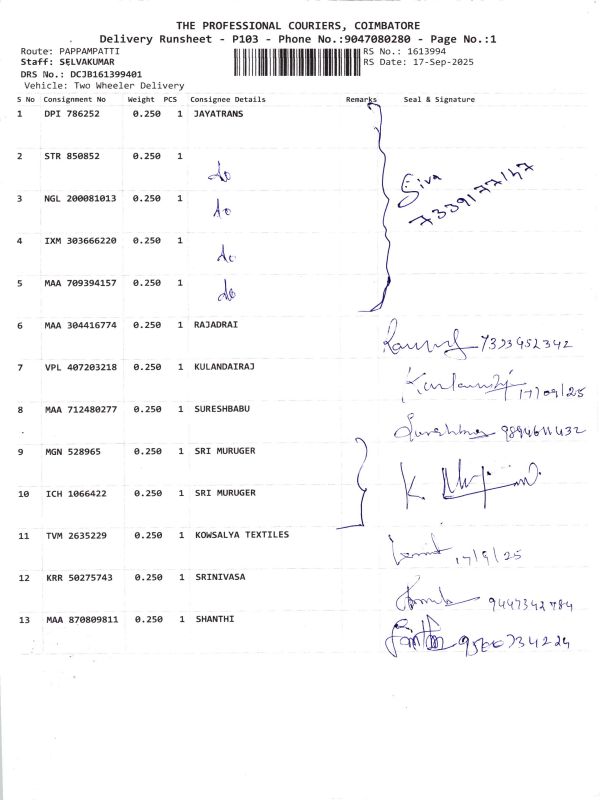 THE PROFESSIONAL COURIERS, COIMBATORE
Delivery Runsheet - P103 - Phone No.:9047080280 - Page No.:1
Route: PAPPAMPATTI RS No.: 1613994
Staff: SELVAKUMAR RS Date: 17-Sep-2025
DRS No.: DCJB161399401
Vehicle: Two Wheeler Delivery
S No Consignment No Weight PCS Consignee Details Remarks Seal & Signature
1 DPI 786252 0.250 1 JAYATRANS
2 STR 850852 0.250 1 do
Siva
7339177147
3 NGL 200081013 0.250 1 do
4 IXM 303666220 0.250 1 do
5 MAA 709394157 0.250 1 do
6 MAA 304416774 0.250 1 RAJADRAI 7393452342
7 VPL 407203218 0.250 1 KULANDAIRAJ 17/09/25
8 MAA 712480277 0.250 1 SURESHBABU Sureshbabu 9894611432
9 MGN 528965 0.250 1 SRI MURUGER
10 ICH 1066422 0.250 1 SRI MURUGER
11 TVM 2635229 0.250 1 KOWSALYA TEXTILES 17/9/25
12 KRR 50275743 0.250 1 SRINIVASA 9447342784
13 MAA 870809811 0.250 1 SHANTHI 9500734224